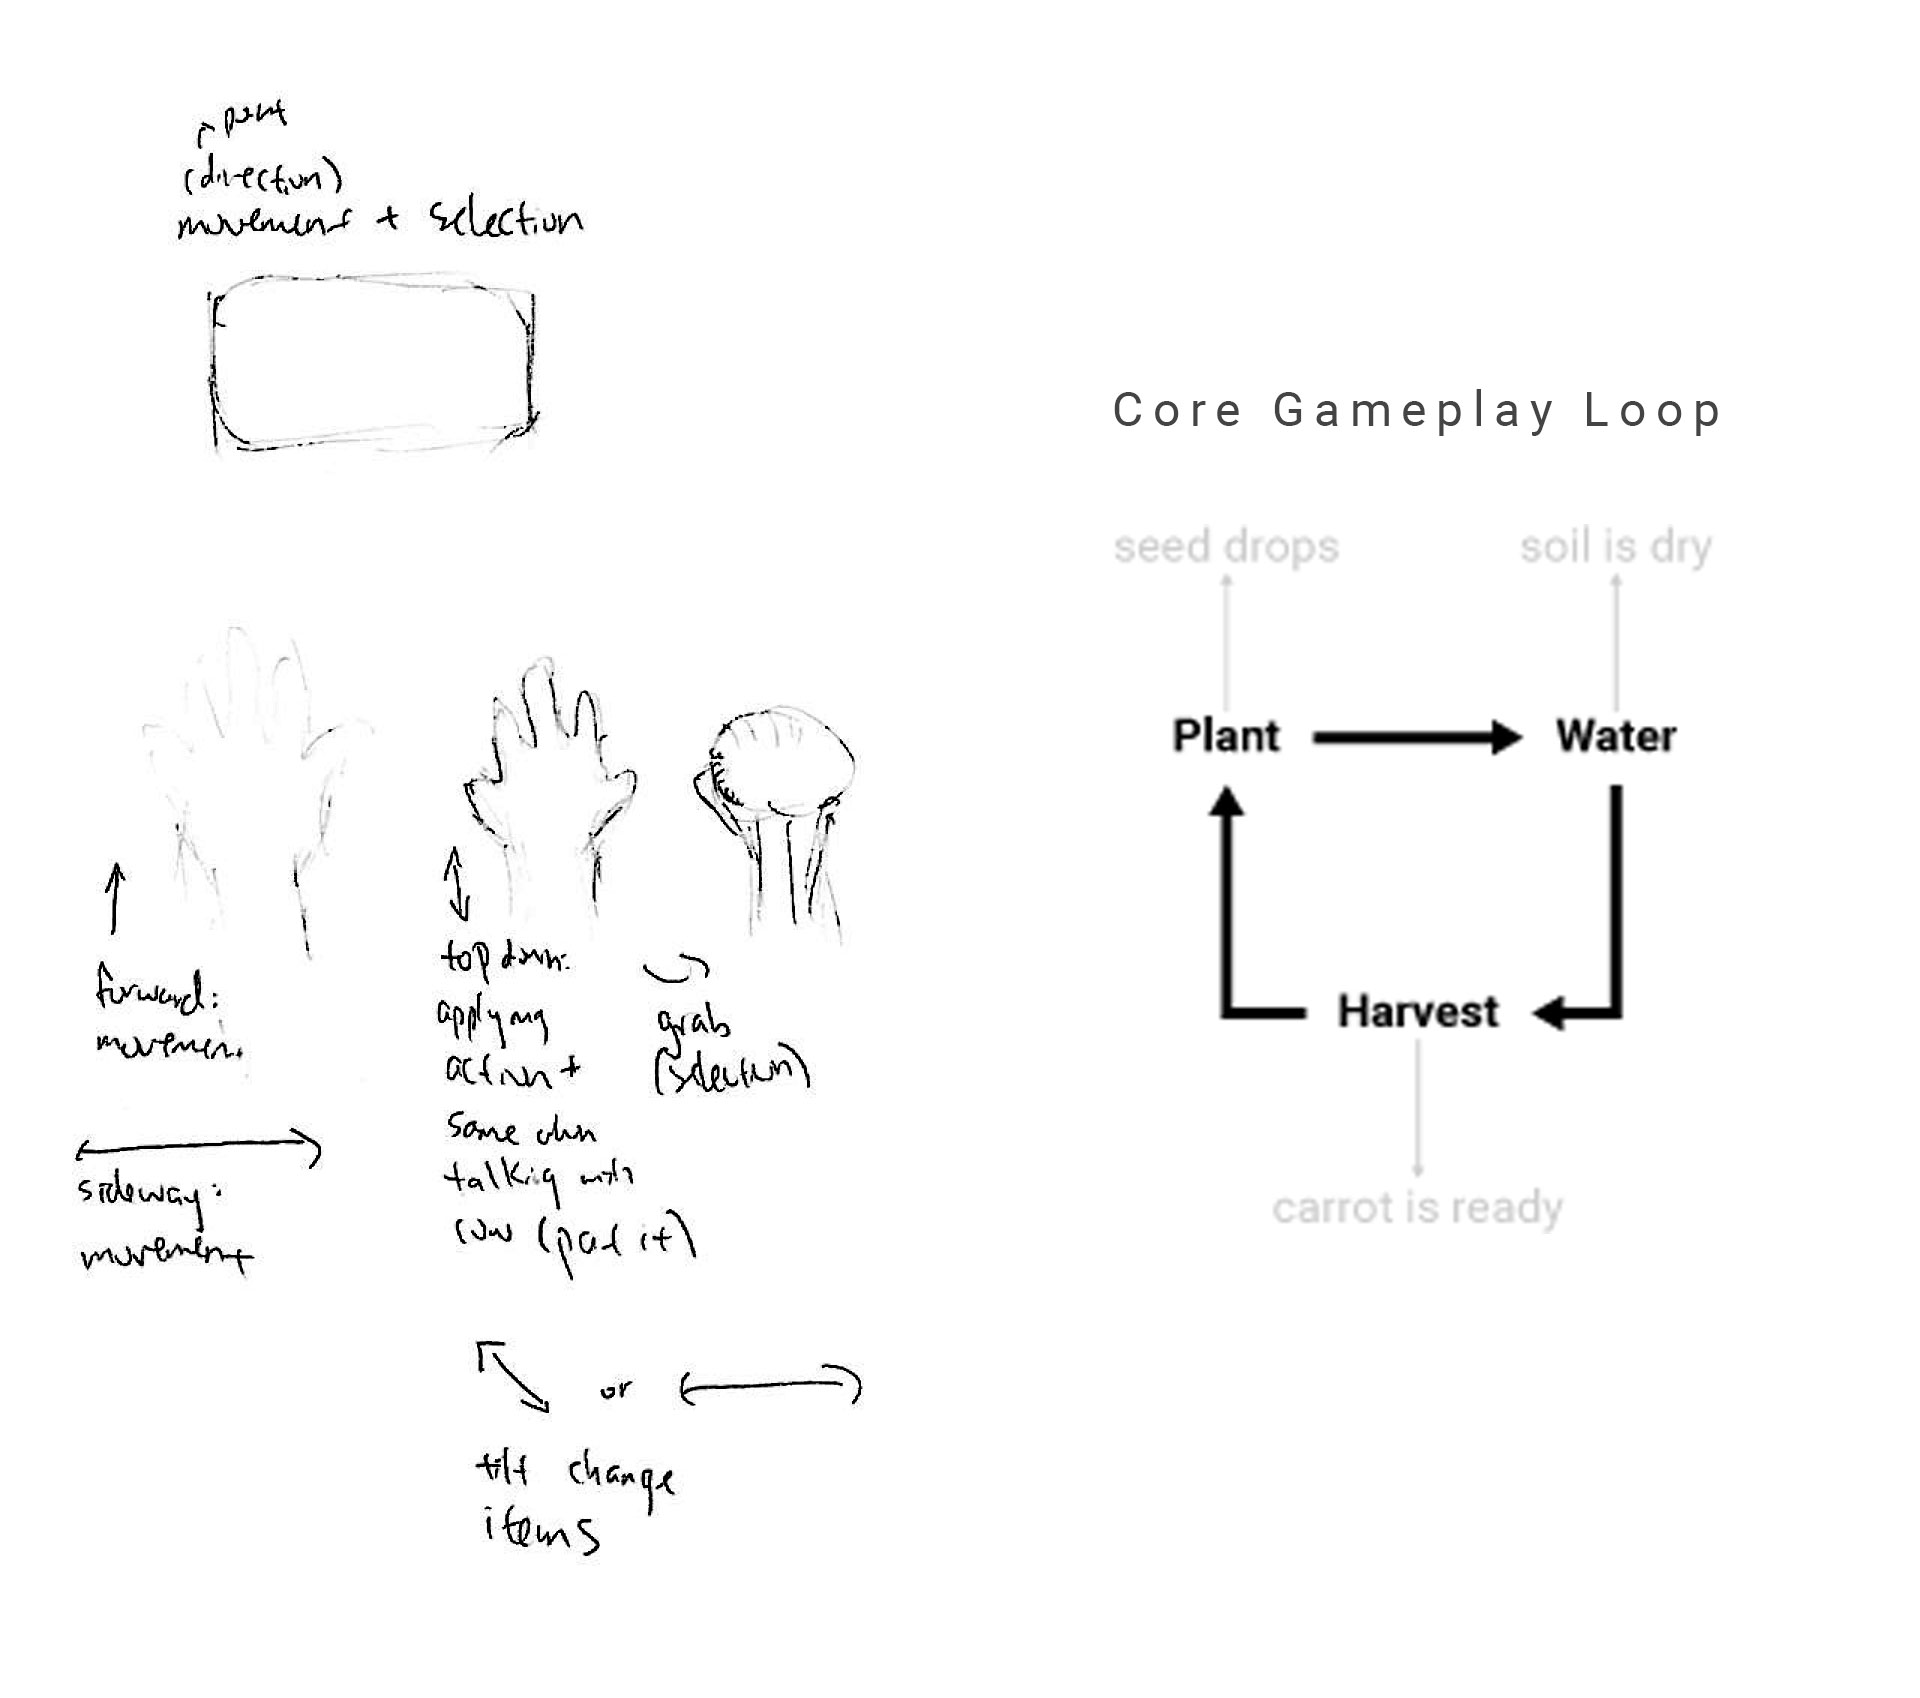 (direction)
movement + selection
forward:
movemen
sideway:
movement
top down:
applying
action +
same when
talking with
cow (pat it)
grab
(selection)
or
tilt change
items
Core Gameplay Loop
seed drops
soil is dry
Plant
Water
Harvest
carrot is ready